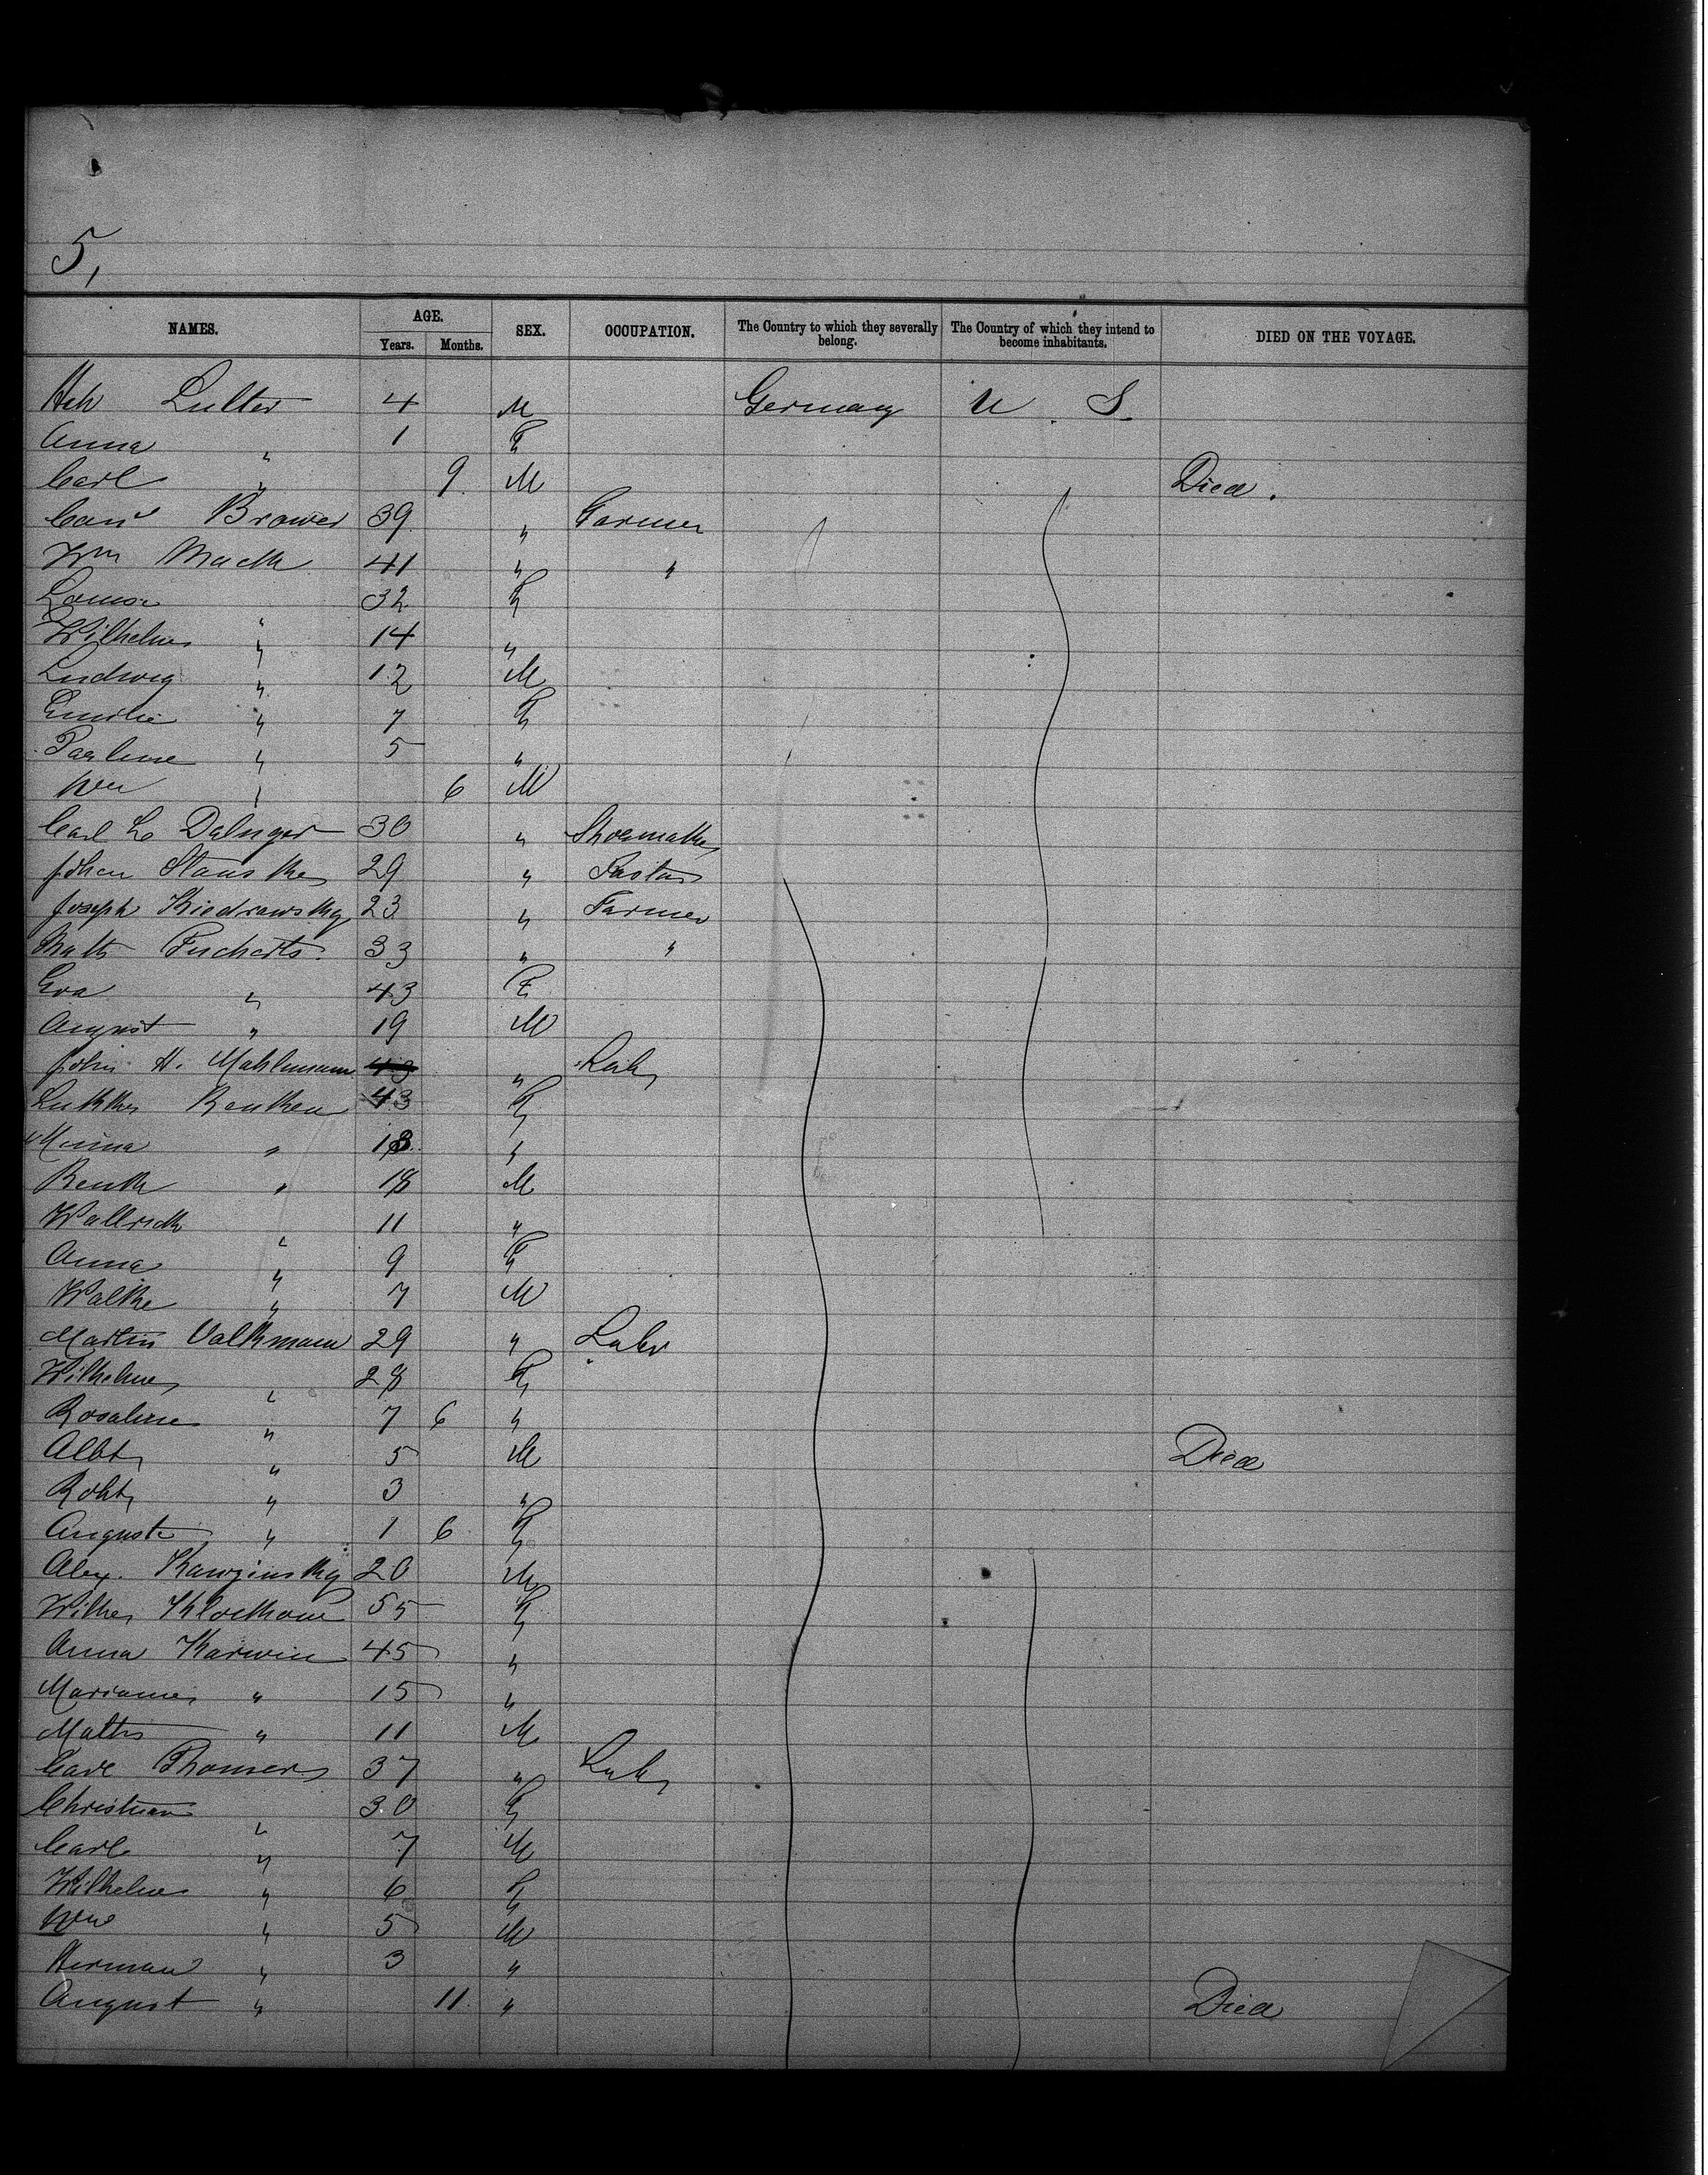 5,
NAMES. AGE. Years. Months. SEX. OCCUPATION. The Country to which they severally belong. The Country of which they intend to become inhabitants. DIED ON THE VOYAGE.
Luller 4 M Germany U S
Anna " 1 F
Carl " 9 M Died.
Brower 39 " Farmer
Wm Mack 41 " "
Louise " 32 F
Wilhelm " 14 "
Ludwig " 12 M
Emilie " 7 F
Pauline " 5 "
Wm " 6 M
Carl L. 30 " Shoemaker
Johan 29 "
Joseph Kiedrowsky 23 " Farmer
Math 33 " "
Eva " 43 F
August " 19 M
John H. Mahlmann " Labr
Renken 43 F
Minna " 13 "
Renth " 18 M
Wallrich " 11 "
Anna " 9 F
" 7 M
Martin Valkmann 29 " Labr
Wilhelm " 28 F
Rosaline " 7 6 "
Albt " 5 M Died
Robt " 3 "
Auguste " 1 6 F
Alex. 20 M
55 F
Anna Karwin 45 "
Marianne " 15 "
Maths " 11 M
Carl 37 " Labr
Christian " 30 F
Carl " 7 M
Wilhelm " 6 F
Wm " 5 M
Herman " 3 "
August " 11 " Died